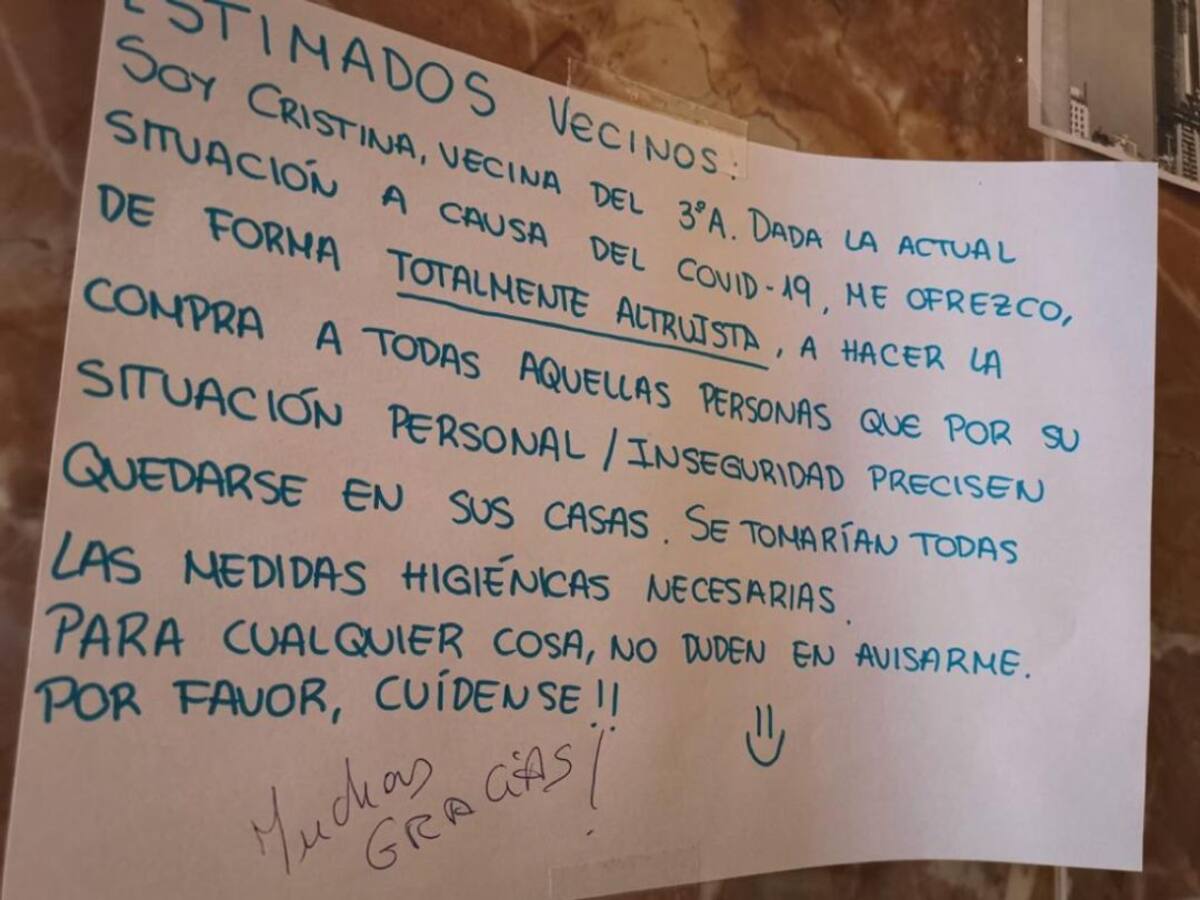 ESTIMADOS VECINOS:
SOY CRISTINA, VECINA DEL 3ºA. DADA LA ACTUAL
SITUACIÓN A CAUSA DEL COVID-19, ME OFREZCO,
DE FORMA TOTALMENTE ALTRUISTA, A HACER LA
COMPRA A TODAS AQUELLAS PERSONAS QUE POR SU
SITUACIÓN PERSONAL / INSEGURIDAD PRECISEN
QUEDARSE EN SUS CASAS. SE TOMARÍAN TODAS
LAS MEDIDAS HIGIÉNICAS NECESARIAS.
PARA CUALQUIER COSA, NO DUDEN EN AVISARME.
POR FAVOR, CUÍDENSE!!
Muchas
GRACIAS!